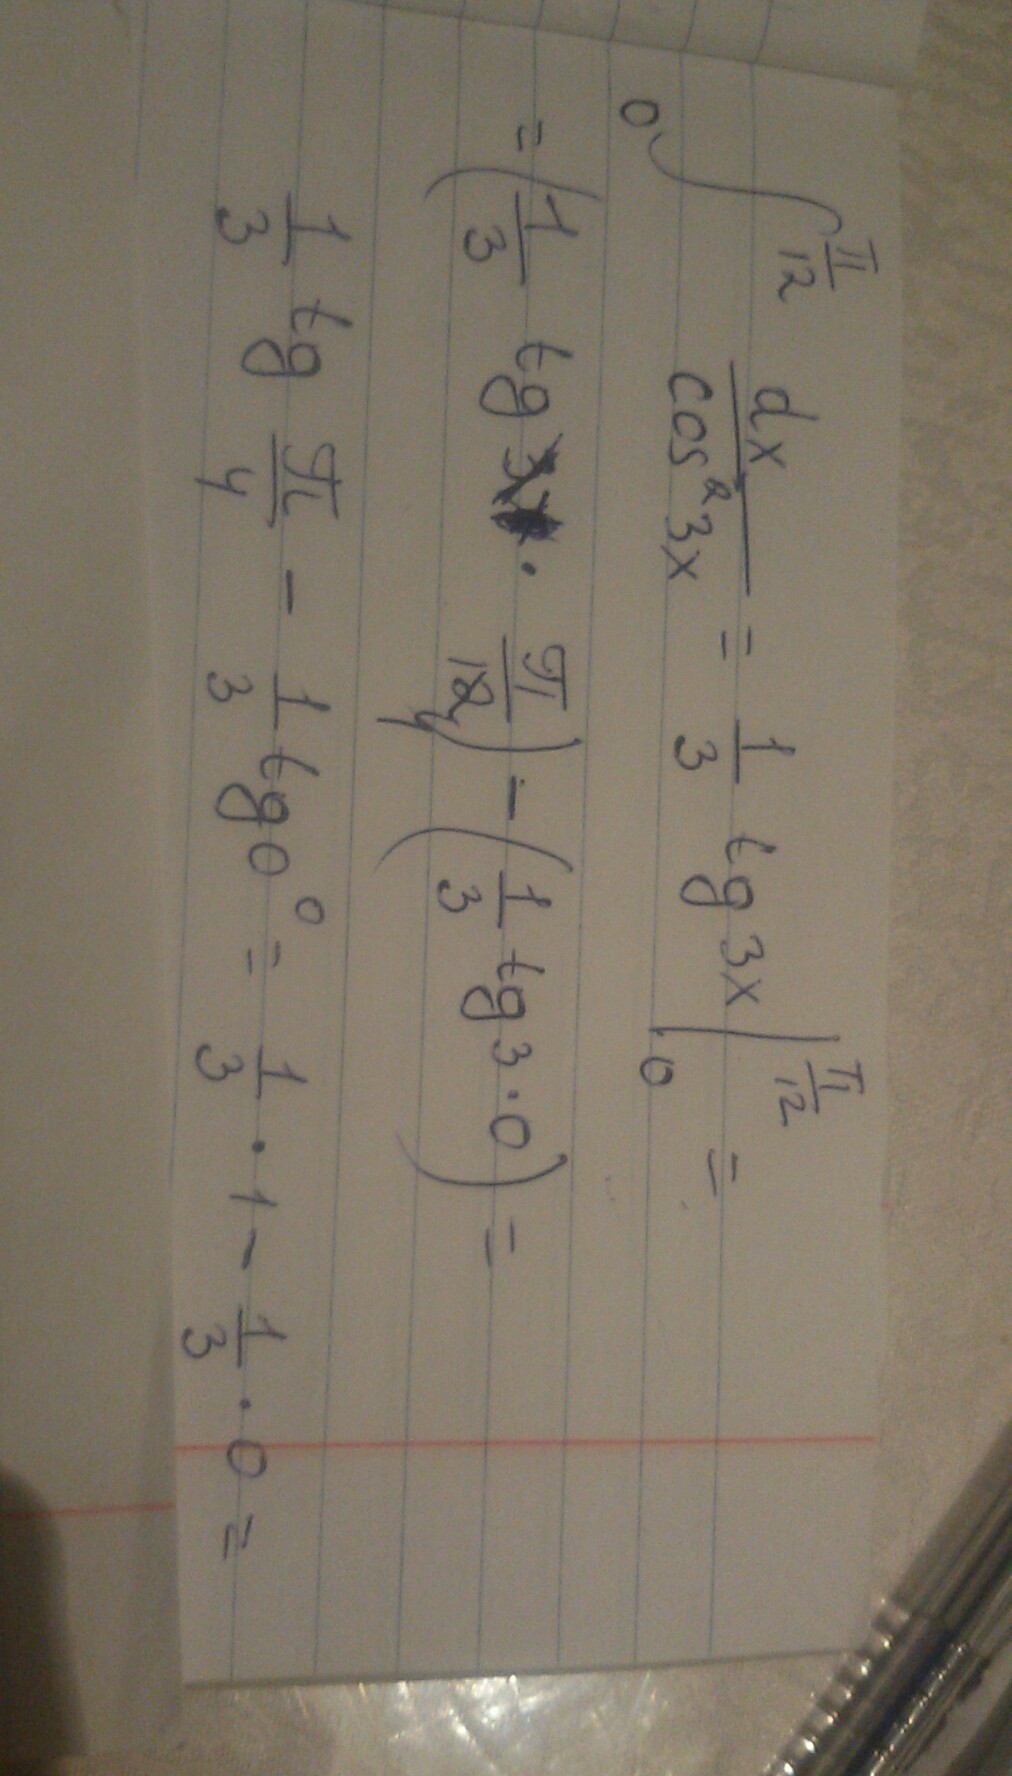 ∫₀^(π/12) dx/cos²3x = 1/3 tg 3x |₀^(π/12) =
= (1/3 tg · π/12 4) − (1/3 tg 3·0) =
1/3 tg π/4 − 1/3 tg 0° = 1/3 · 1 − 1/3 · 0 =